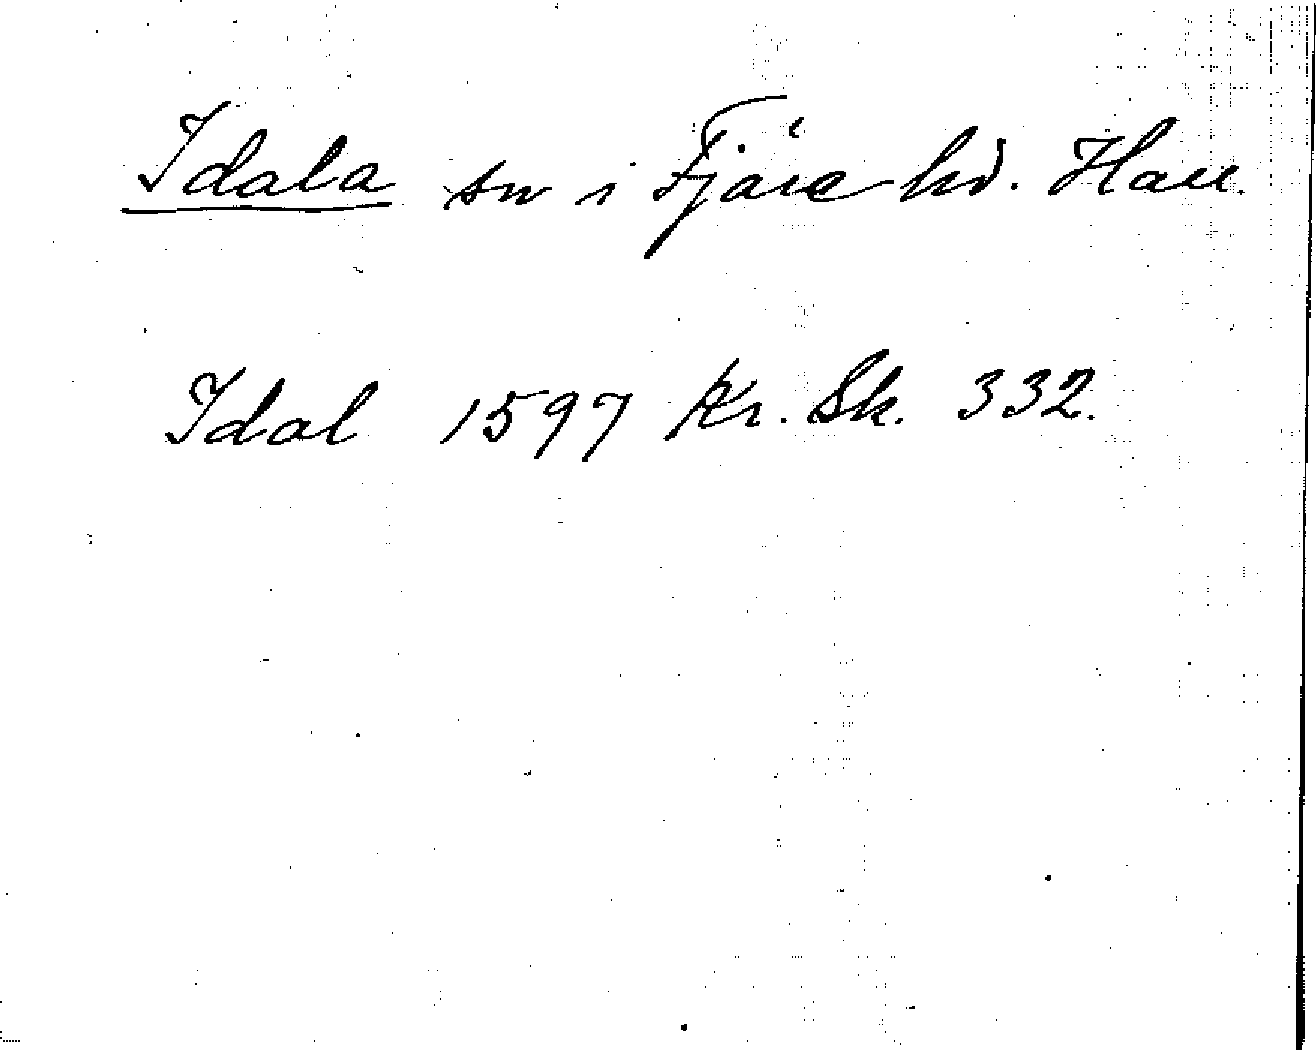 Idala sn i Fjäre hd. Hall.
Idal 1597 Kr. Sk. 332.